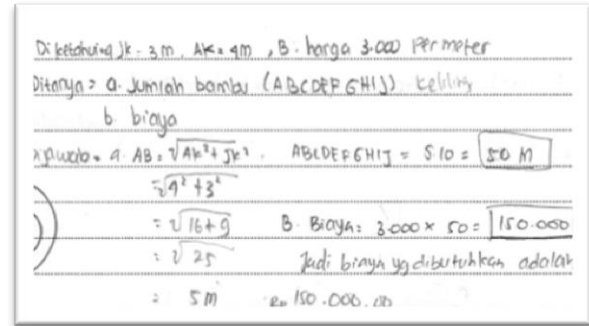 Diketahui = Jk = 3m, AK = 4m, B. harga 3.000 Per meter
Ditanya = a. Jumlah bambu (ABCDEFGHIJ) keliling
b. biaya
a. AB = √AK² + JK² ABCDEFGHIJ = 5 10 = 50 M
= √4² + 3²
= √16 + 9 B. Biaya = 3.000 × 50 = 150.000
= √25 Jadi biaya yg dibutuhkan adalah
= 5m Rp 150.000.00